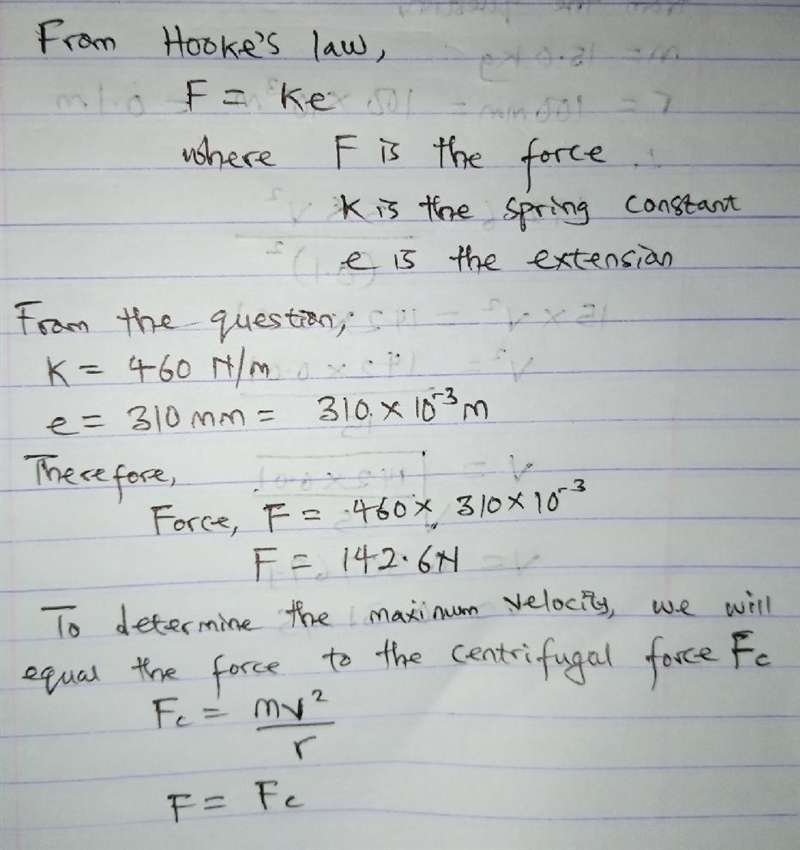 From Hooke's law,
F = ke
where F is the force
K is the spring constant
e is the extension
From the question,
K = 460 N/m
e = 310 mm = 310 × 10⁻³ m
Therefore,
Force, F = 460 × 310 × 10⁻³
F = 142.6N
To determine the maximum velocity, we will
equal the force to the centrifugal force Fc
Fc = mv²/r
F = Fc